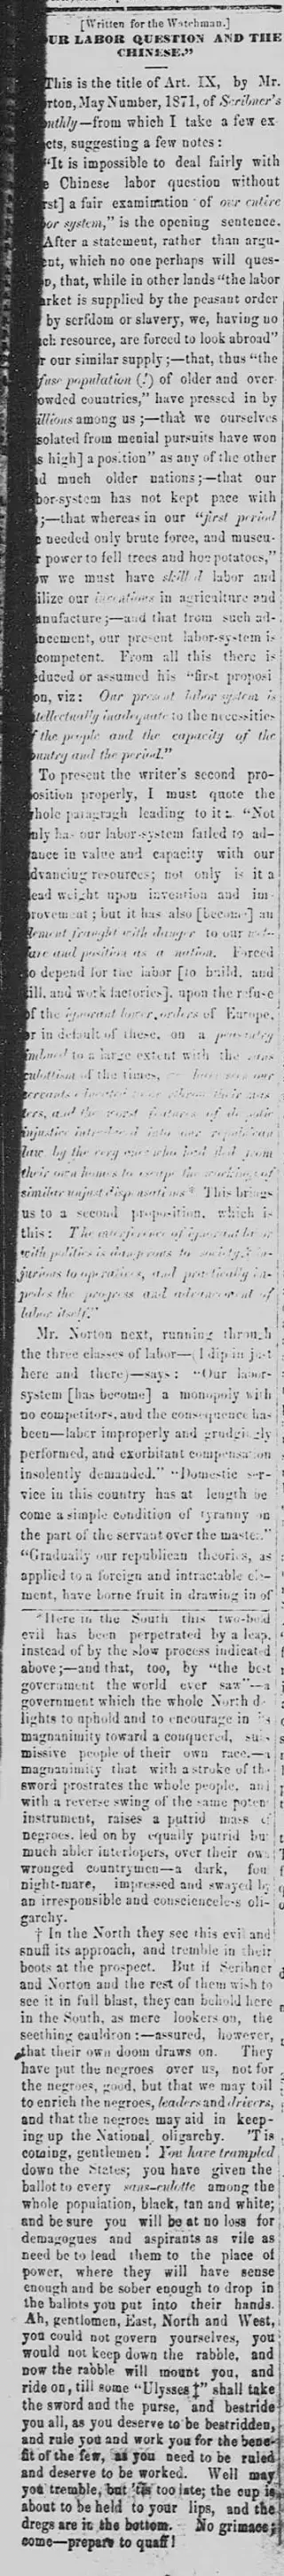 [Written for the Watchman.]
UR LABOR QUESTION AND THE
CHINESE."
This is the title of Art. IX, by Mr.
rton, May Number, 1871, of Scribner's
nthly—from which I take a few ex
cts, suggesting a few notes:
"It is impossible to deal fairly with
e Chinese labor question without
rst] a fair examination of our entire
or system," is the opening sentence.
After a statement, rather than argu-
ent, which no one perhaps will ques-
n, that, while in other lands "the labor
arket is supplied by the peasant order
by serfdom or slavery, we, having no
ch resource, are forced to look abroad"
r our similar supply;—that, thus "the
fuse population (!) of older and over
owded countries," have pressed in by
illions among us;—that we ourselves
solated from menial pursuits have won
s high] a position" as any of the other
d much older nations;—that our
bor-system has not kept pace with
;—that whereas in our "first period
e needed only brute force, and muscu-
r power to fell trees and hoe potatoes,"
w we must have skill d labor and
ilize our inventions in agriculture and
anufacture;—and that from such ad-
ncement, our present labor-system is
competent. From all this there is
educed or assumed his "first proposi
on, viz: Our present labor system is
ntellectually inadequate to the necessities
f the people and the capacity of the
ountry and the period."
To present the writer's second pro-
osition properly, I must quote the
hole paragragh leading to it:. "Not
nly has our labor-system failed to ad-
ance in value and capacity with our
dvancing resources; not only is it a
ead weight upon invention and im-
rovement; but it has also [become] an
lement fraught with danger to our wel-
are and position as a nation. Forced
o depend for the labor [to build, and
ill, and work factories], upon the refuse
of the ignorant lower orders of Europe,
r in default of these, on a peasantry
imbued to a large extent with the sans
culottism of the times, we have seen our
servants elevated to or above their mas
ters, and the worst features of
injustice introduced into our republican
law by the very ones who had fled from
their own homes to escape the working of
similar unjust dispensations* This brings
us to a second proposition, which is
this: The interference of ignorant labor
with politics is dangerous to society, in-
jurious to operatives, and practically im-
pedes the progress and advancement of
labor itself."
Mr. Norton next, running through
the three classes of labor—(I dip in just
here and there)—says: "Our labor-
system [has become] a monopoly with
no competitors, and the consequence has
been—labor improperly and grudgingly
performed, and exorbitant compensation
insolently demanded." "Domestic ser-
vice in this country has at length be
come a simple condition of tyranny on
the part of the servant over the master."
"Gradually our republican theories, as
applied to a foreign and intractable ele-
ment, have borne fruit in drawing in of
*Here in the South this two-fold
evil has been perpetrated by a leap,
instead of by the slow process indicated
above;—and that, too, by "the best
government the world ever saw"—a
government which the whole North de
lights to uphold and to encourage in its
magnanimity toward a conquered, sub-
missive people of their own race.—a
magnanimity that with a stroke of the
sword prostrates the whole people, and
with a reverse swing of the same potent
instrument, raises a putrid mass of
negroes, led on by equally putrid but
much abler interlopers, over their own
wronged countrymen—a dark, foul
night-mare, impressed and swayed by
an irresponsible and conscienceless oli-
garchy.
† In the North they see this evil and
snuff its approach, and tremble in their
boots at the prospect. But if Scribner
and Norton and the rest of them wish to
see it in full blast, they can behold here
in the South, as mere lookers on, the
seething cauldron:—assured, however,
that their own doom draws on. They
have put the negroes over us, not for
the negroes, good, but that we may toil
to enrich the negroes, leaders and drivers,
and that the negroes may aid in keep-
ing up the National oligarchy. 'Tis
coming, gentlemen! You have trampled
down the States; you have given the
ballot to every sans-culotte among the
whole population, black, tan and white;
and be sure you will be at no loss for
demagogues and aspirants as vile as
need be to lead them to the place of
power, where they will have sense
enough and be sober enough to drop in
the ballots you put into their hands.
Ah, gentlemen, East, North and West,
you could not govern yourselves, you
would not keep down the rabble, and
now the rabble will mount you, and
ride on, till some "Ulysses‡" shall take
the sword and the purse, and bestride
you all, as you deserve to be bestridden,
and rule you and work you for the bene-
fit of the few, as you need to be ruled
and deserve to be worked. Well may
you tremble, but 'tis too late; the cup is
about to be held to your lips, and the
dregs are in the bottom. No grimace;
come—prepare to quaff!